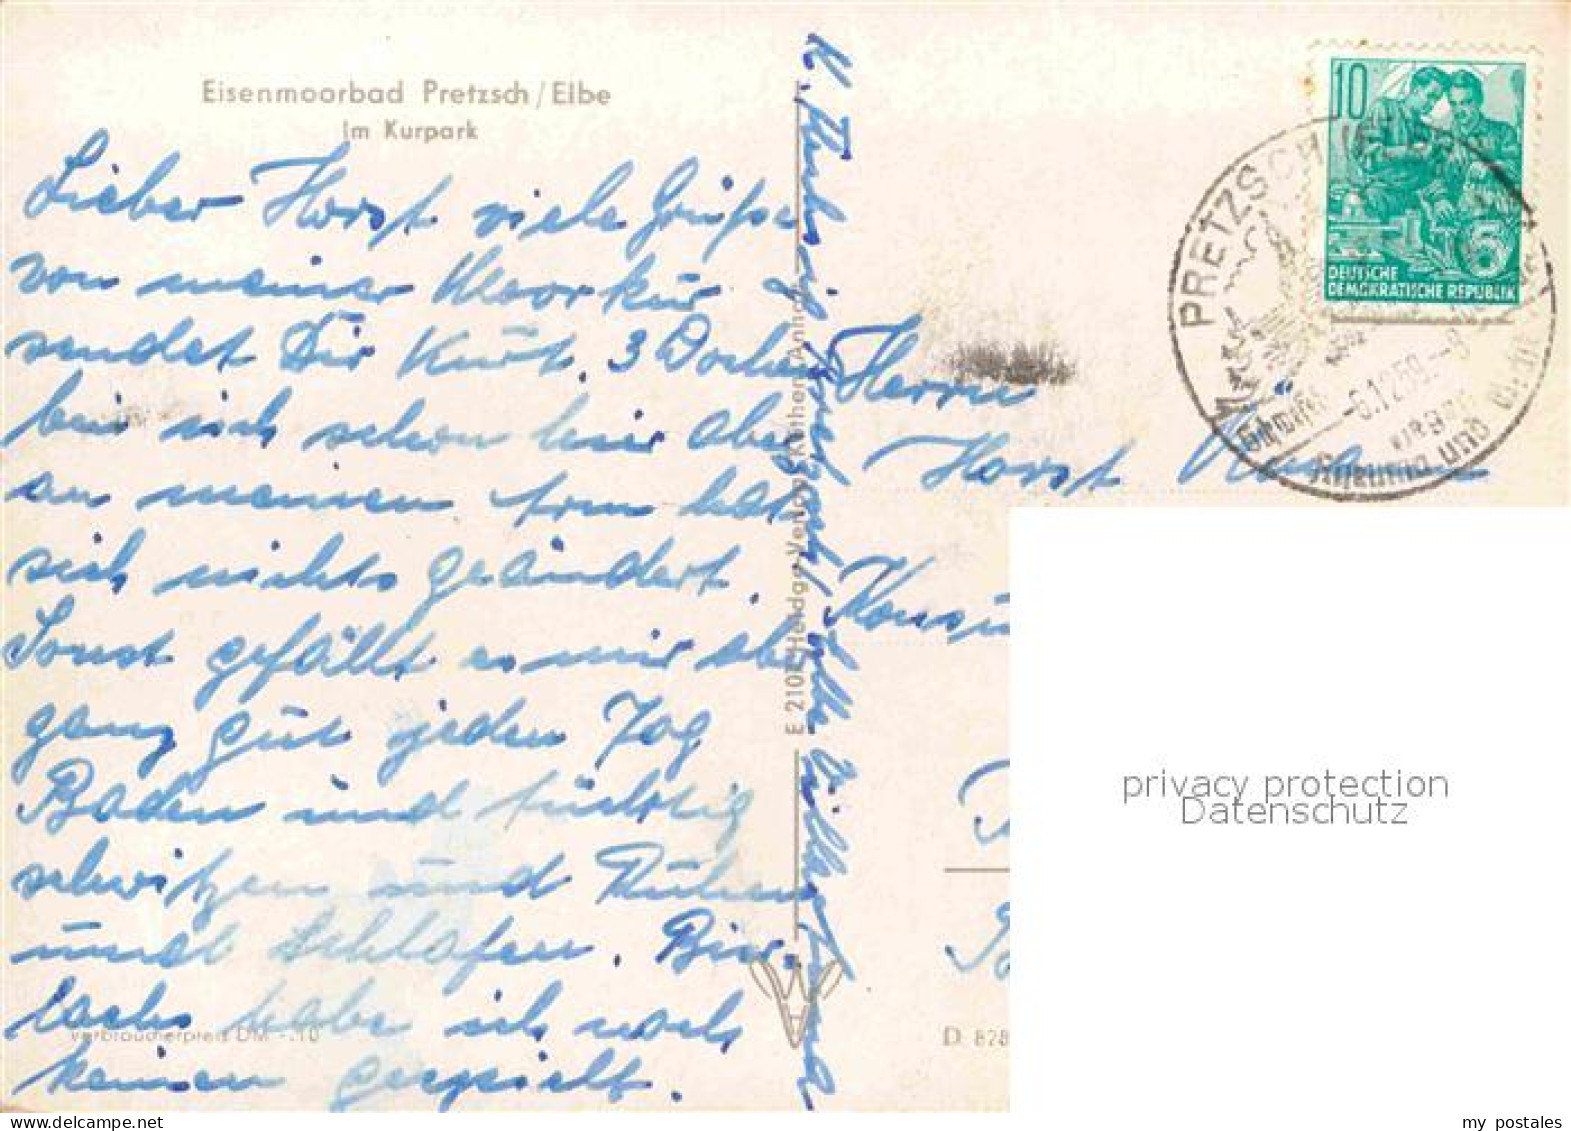 Eisenmoorbad Pretzsch/Elbe
Im Kurpark
Lieber Horst viele Grüße
von meiner Moorkur
sendet Dir Kurt. 3 Wochen
bin ich schon hier aber
an meinen Arm hat
sich nichts geändert.
Sonst gefällt es mir
ganz gut jeden Tag
Baden und tüchtig
schwitzen und Ruhen
und Schlafen. Bier
habe ich noch
keinen gespielt.
Verbraucherpreis DM -.10
E 210 Heldge-Verlag, Köthen/Anhalt
10
DEUTSCHE
DEMOKRATISCHE REPUBLIK
5
PRETZSCH
-6.12.59.--8
und
Herrn
Horst
Konsu
D 828
privacy protection
Datenschutz
my postales